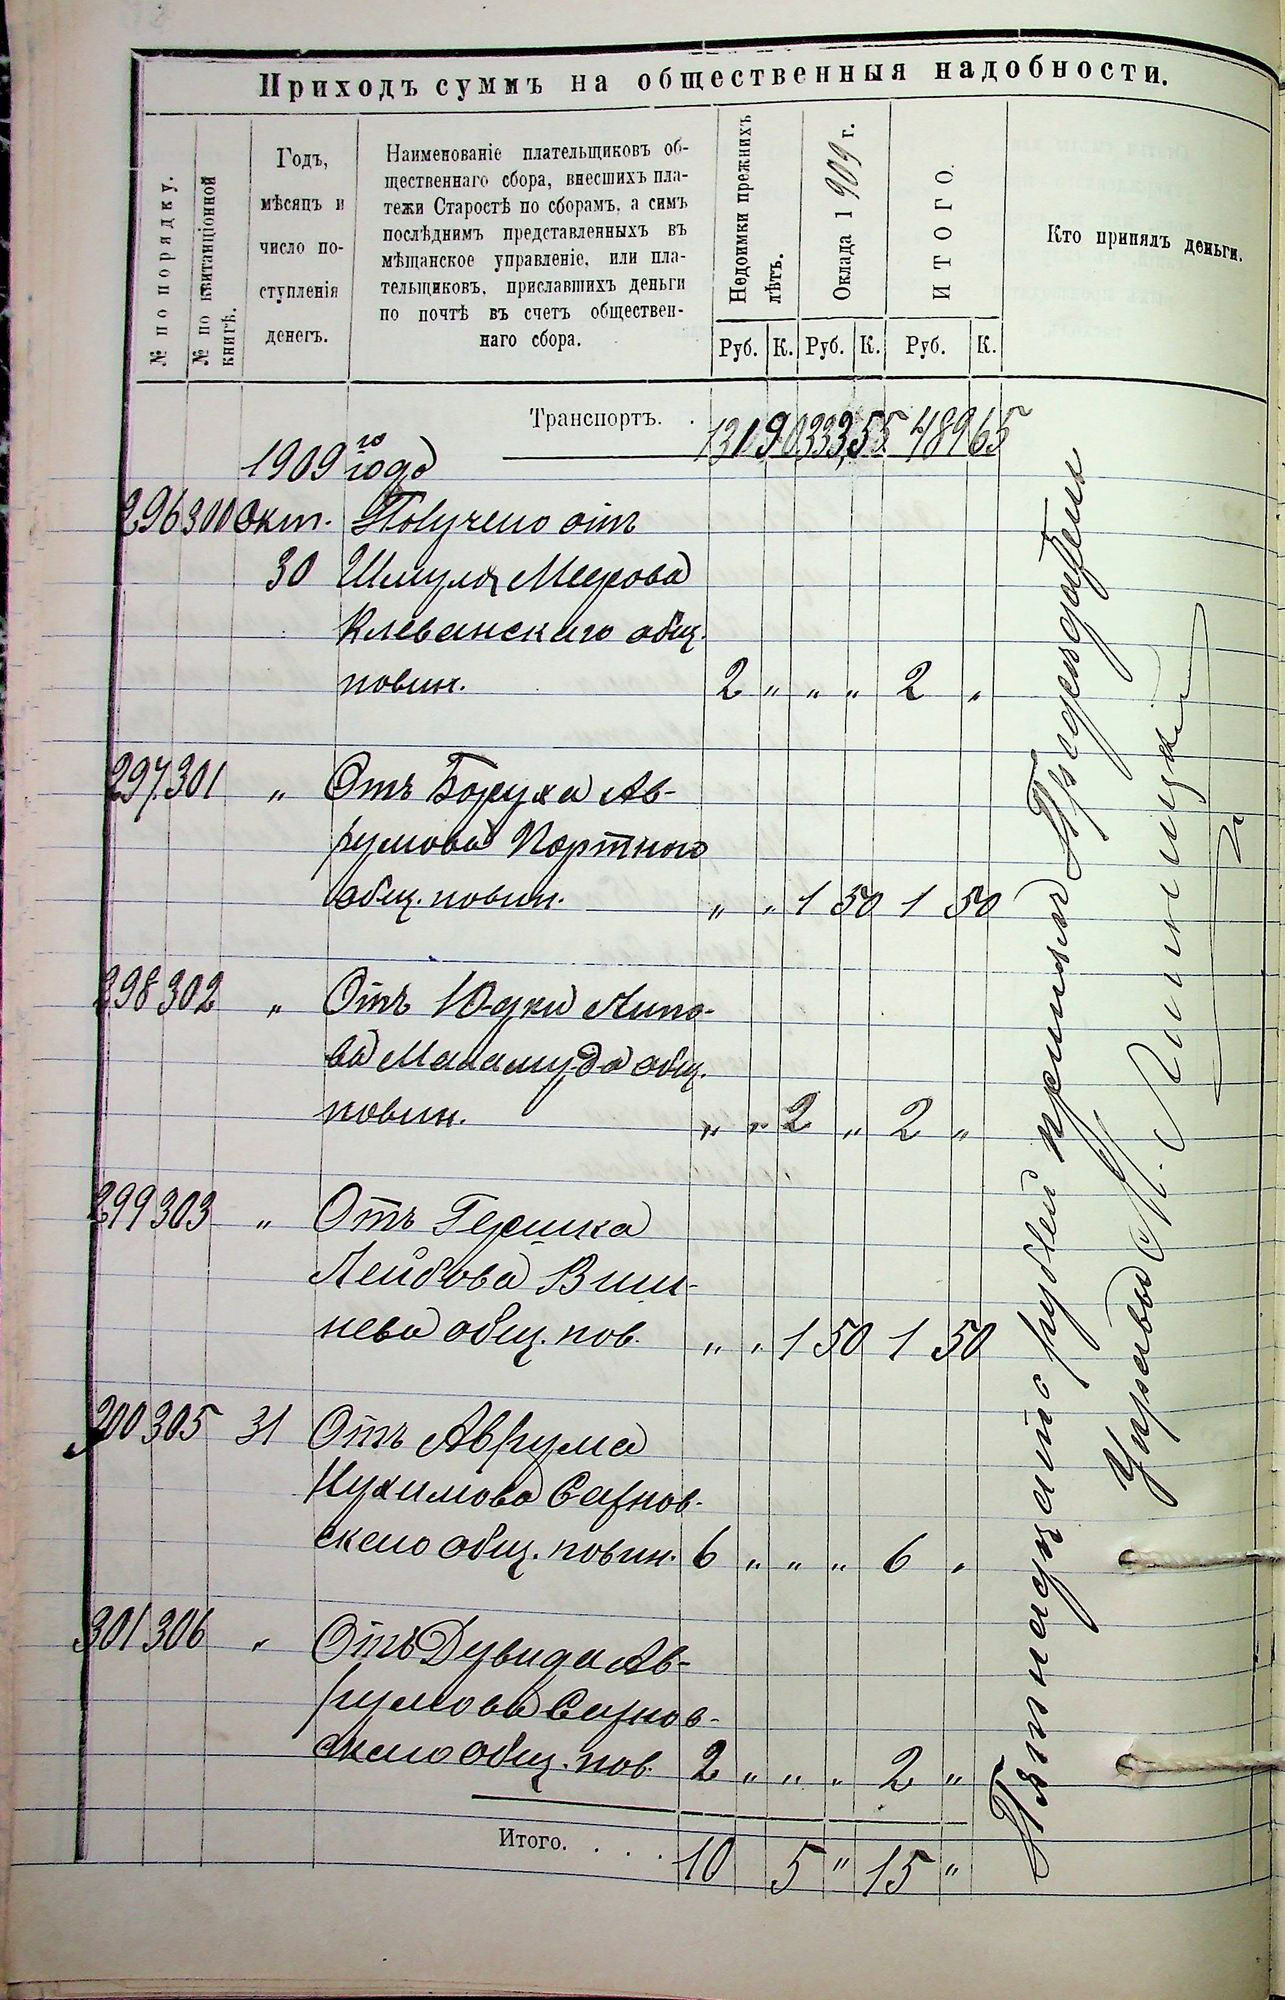 Приходъ суммъ на общественныя надобности.
№ по порядку.
№ по квитанціонной
книгѣ.
Годъ,
мѣсяцъ и
число по-
ступленія
денегъ.
Наименованіе плательщиковъ об-
щественнаго сбора, внесшихъ пла-
тежи Старостѣ по сборамъ, а симъ
послѣднимъ представленныхъ въ
мѣщанское управленіе, или пла-
тельщиковъ, приславшихъ деньги
по почтѣ въ счетъ обществен-
наго сбора.
Недоимки прежнихъ
лѣтъ.
Оклада 1909 г.
ИТОГО.
Кто принялъ деньги.
Руб. К. Руб. К. Руб. К.
Транспортъ. . 131 90 333,55 489 65
1909 го года
296 300 Окт. Получено отъ
30 Шмуля Меерова
Клеванскаго общ.
повин. 2 „ „ „ 2 „
297. 301 „ Отъ Боруха Ав-
румова Портного
общ. повин. „ „ 1 50 1 50
298 302 „ Отъ Юдки Липо-
ва Маламуда общ.
повин. „ „ 2 „ 2 „
299 303 „ Отъ Гершка
Лейбова Виш-
нева общ. пов. „ „ 1 50 1 50
200 305 31 Отъ Аврума
Нухимова Сарнов-
скаго общ. повин. 6 „ „ „ 6 „
301 306 „ Отъ Дувида Ав-
румова Сарнов-
скаго общ. пов. 2 „ „ „ 2 „
Итого. . . . . 10 5 „ 15 „
Пятнадцать рублей принялъ Председатель
Управы